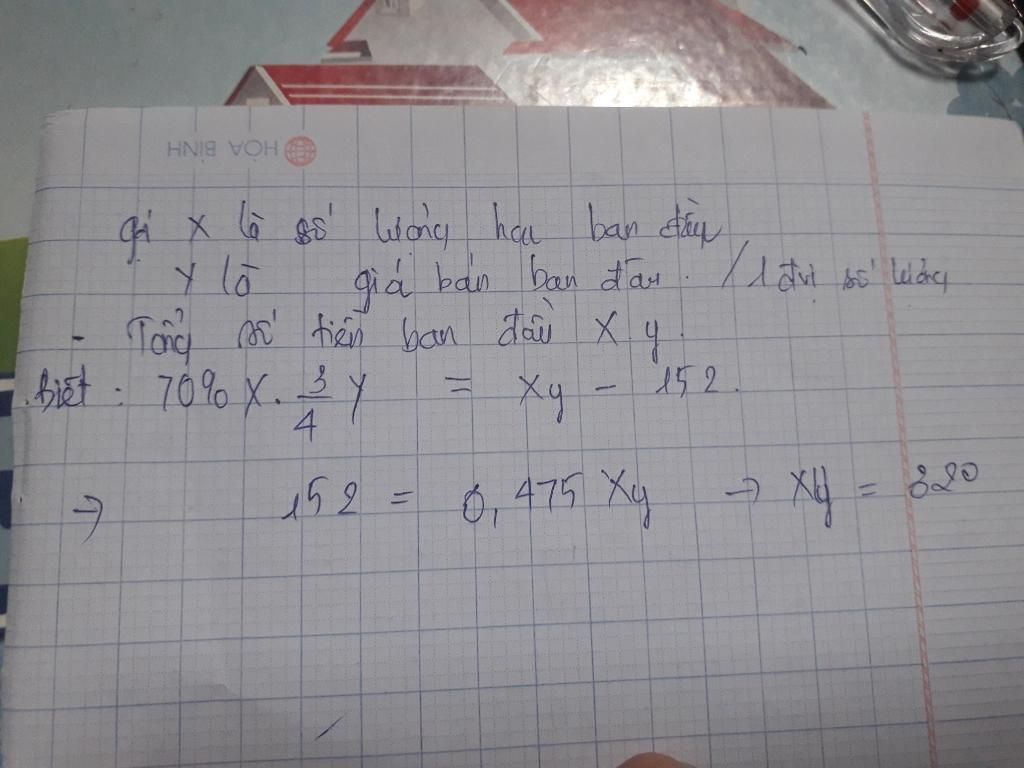 HÒA BÌNH
gọi X là số lượng hoa ban đầu
Y là giá bán ban đầu. / 1 đvị số lượng
- Tổng số tiền ban đầu X.y.
Biết : 70% X. 3/4 Y = Xy - 152.
→ 152 = 0,475 Xy → Xy = 320